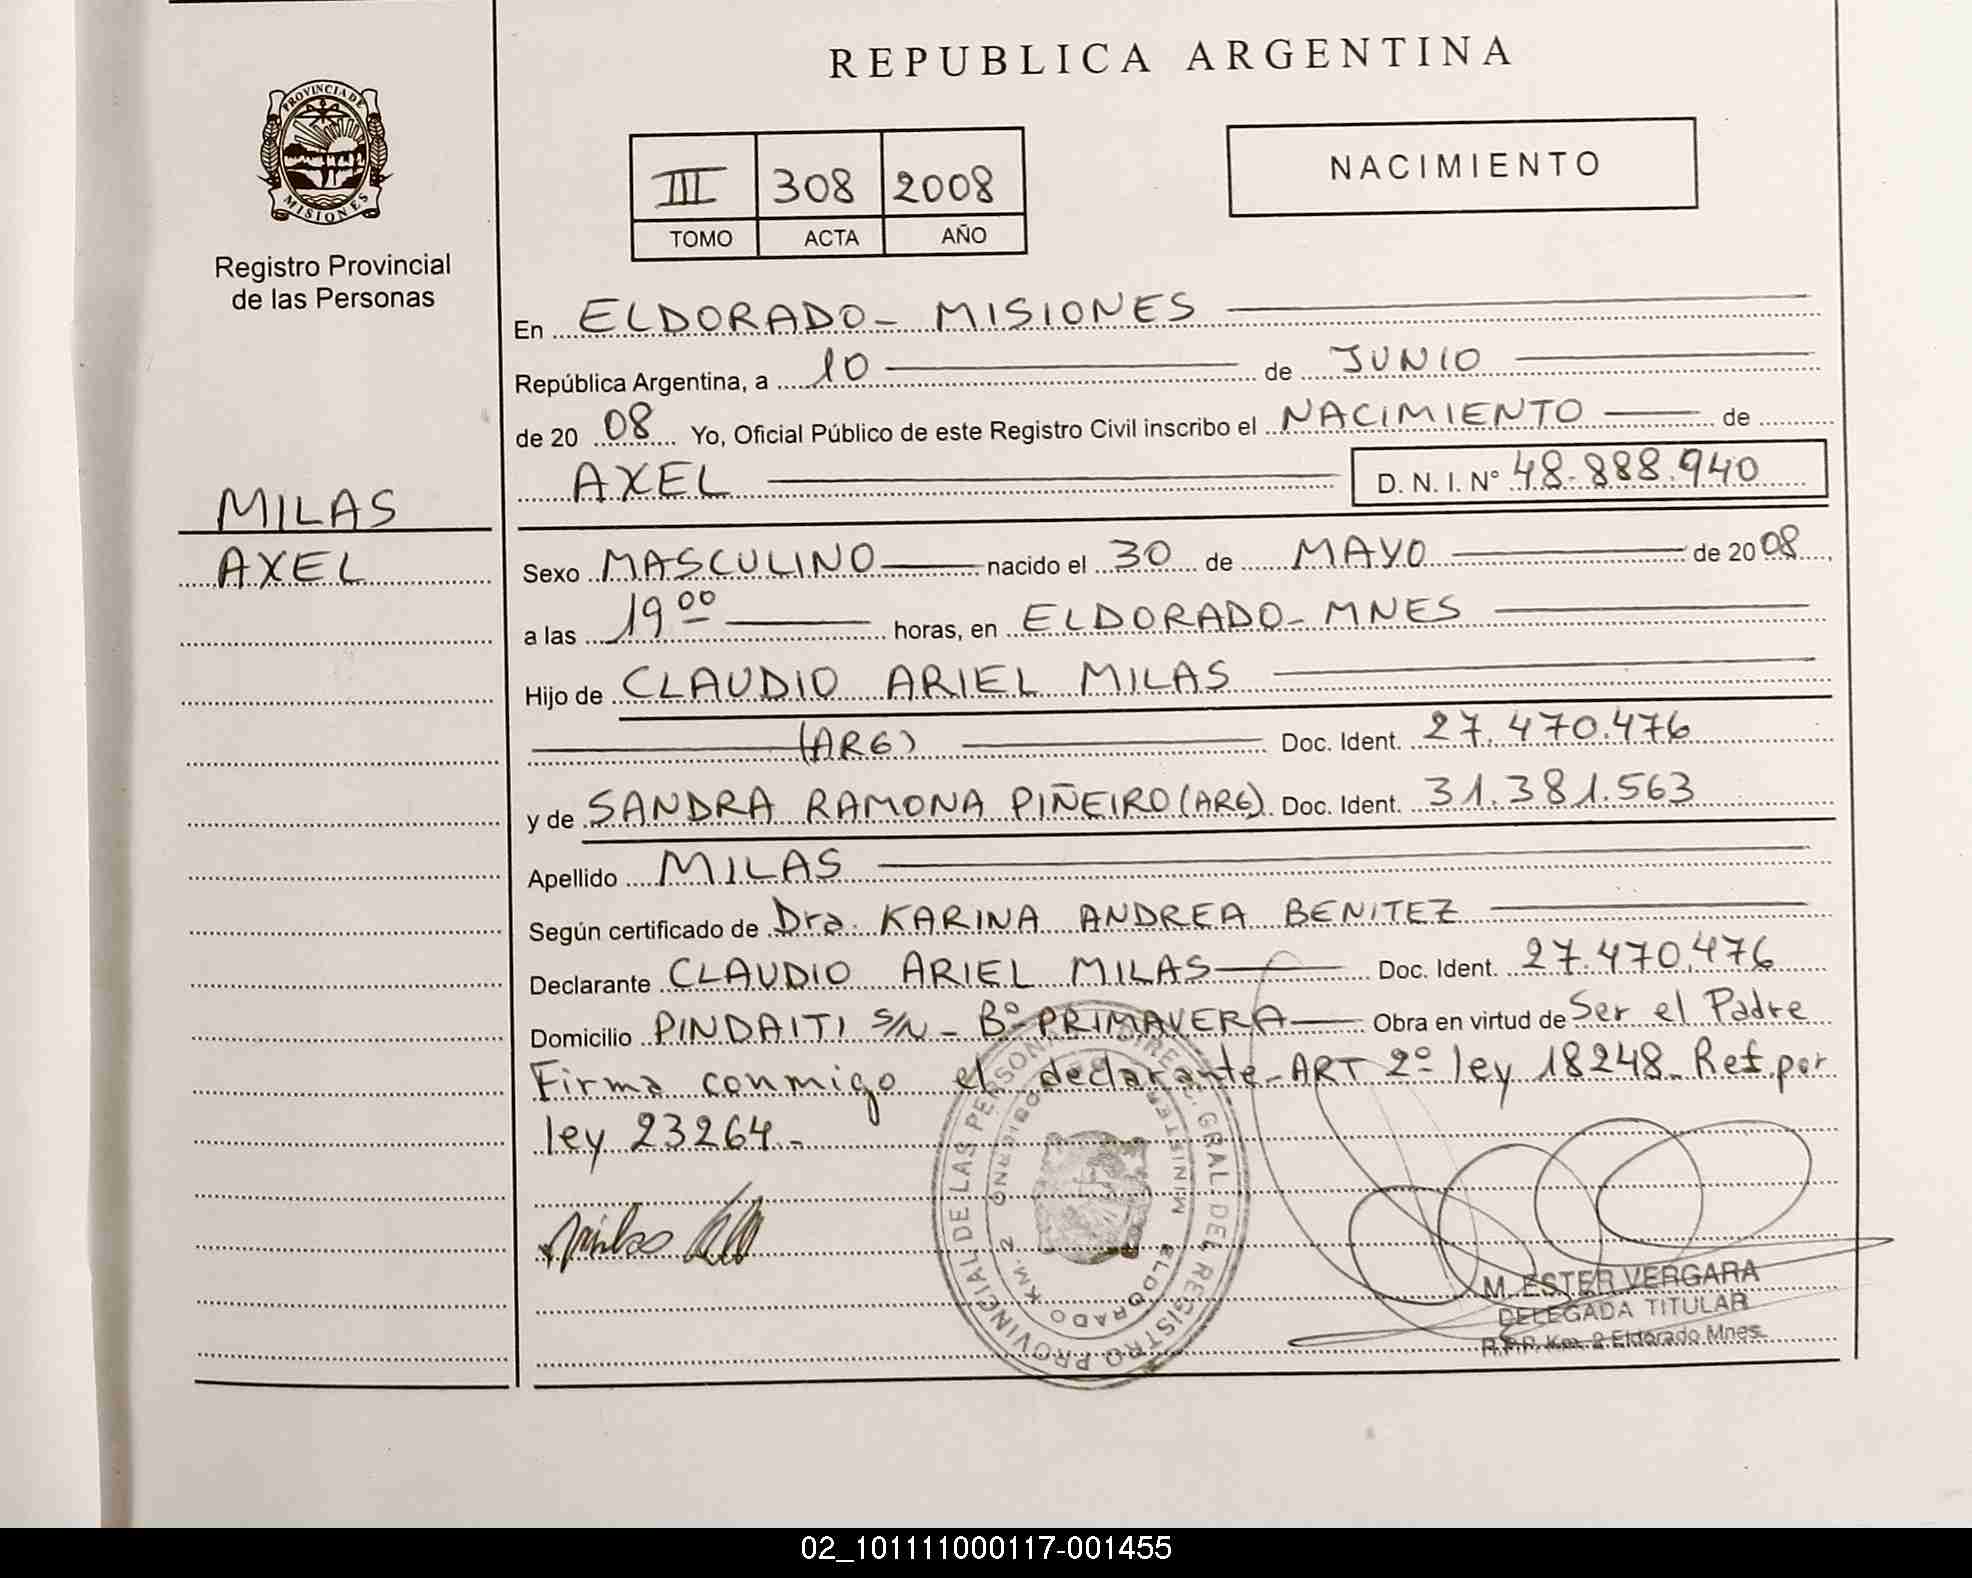 REPUBLICA ARGENTINA
PROVINCIA DE
MISIONES
Registro Provincial
de las Personas
NACIMIENTO
III 308 2008
TOMO ACTA AÑO
En ELDORADO - MISIONES
República Argentina, a 10 de JUNIO
de 20 08 Yo, Oficial Público de este Registro Civil inscribo el NACIMIENTO de
AXEL D. N. I. N° 48.888.940
MILAS
AXEL
Sexo MASCULINO nacido el 30 de MAYO de 20 08
a las 19 00 horas, en ELDORADO - MNES
Hijo de CLAUDIO ARIEL MILAS
(ARG) Doc. Ident. 27.470.476
y de SANDRA RAMONA PIÑEIRO (ARG) Doc. Ident. 31.381.563
Apellido MILAS
Según certificado de Dra. KARINA ANDREA BENITEZ
Declarante CLAUDIO ARIEL MILAS Doc. Ident. 27.470.476
Domicilio PINDAITI S/N - B° PRIMAVERA Obra en virtud de Ser el Padre
Firma conmigo el declarante - ART 2° ley 18248 - Ref. por
ley 23264 -
DIREC. GRAL. DEL REGISTRO PROVINCIAL DE LAS PERSONAS
ELDORADO KM. 2
M. ESTER VERGARA
DELEGADA TITULAR
R.P.P. Km. 2 Eldorado Mnes.
02_101111000117-001455